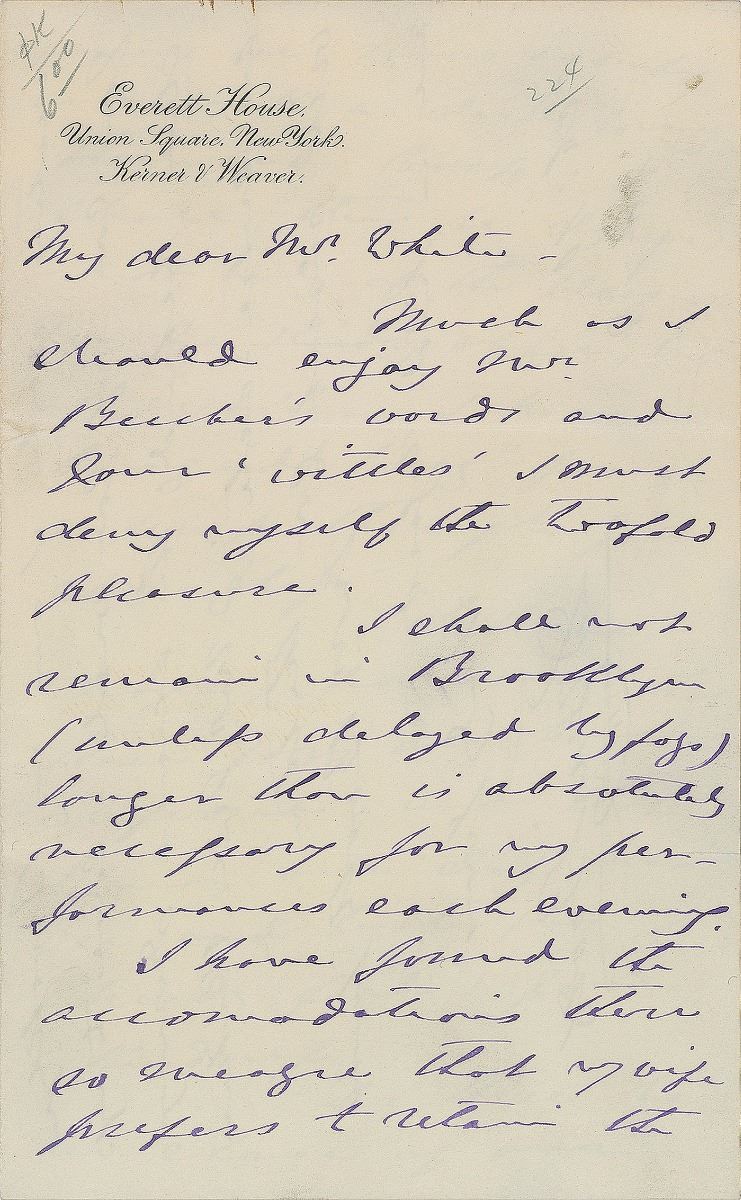 600
224
Everett House.
Union Square. New York.
Kerner & Weaver.
My dear Mr. White -
Much as I
should enjoy Mr
Beecher's words and
your 'vittles' I must
deny myself the twofold
pleasure.
I shall not
remain in Brooklyn
(unless delayed by fogs)
longer than is absolutely
necessary for my per-
formances each evening.
I have found the
accomodations there
so meagre that my wife
prefers to retain the